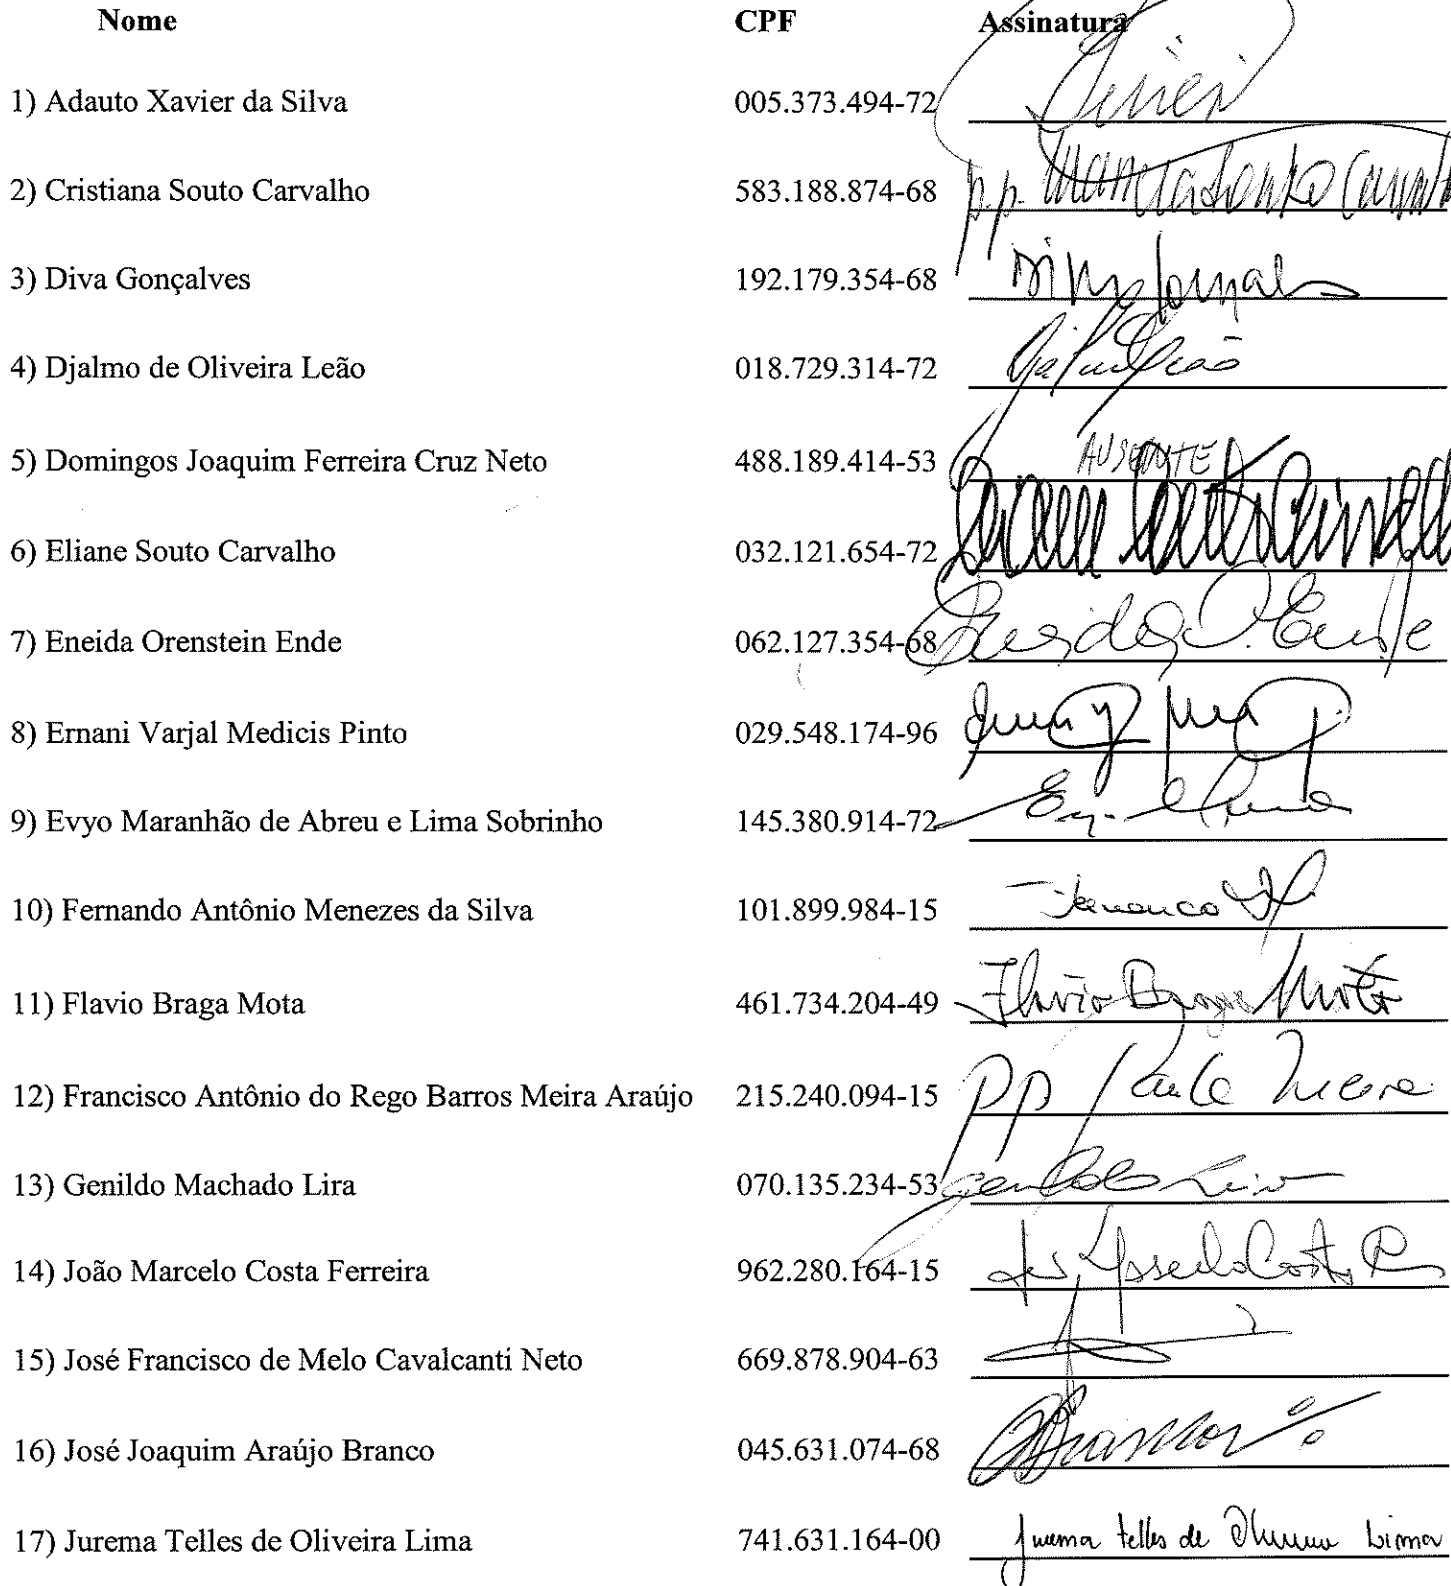 Nome CPF Assinatura
1) Adauto Xavier da Silva 005.373.494-72
2) Cristiana Souto Carvalho 583.188.874-68 p.p.
3) Diva Gonçalves 192.179.354-68
4) Djalmo de Oliveira Leão 018.729.314-72
5) Domingos Joaquim Ferreira Cruz Neto 488.189.414-53 AUSENTE
6) Eliane Souto Carvalho 032.121.654-72
7) Eneida Orenstein Ende 062.127.354-68 Eneida O. Ende
8) Ernani Varjal Medicis Pinto 029.548.174-96
9) Evyo Maranhão de Abreu e Lima Sobrinho 145.380.914-72
10) Fernando Antônio Menezes da Silva 101.899.984-15
11) Flavio Braga Mota 461.734.204-49 Flávio Braga Mota
12) Francisco Antônio do Rego Barros Meira Araújo 215.240.094-15 pp
13) Genildo Machado Lira 070.135.234-53 Genildo Lira
14) João Marcelo Costa Ferreira 962.280.164-15
15) José Francisco de Melo Cavalcanti Neto 669.878.904-63
16) José Joaquim Araújo Branco 045.631.074-68
17) Jurema Telles de Oliveira Lima 741.631.164-00 Jurema Telles de Oliveira Lima